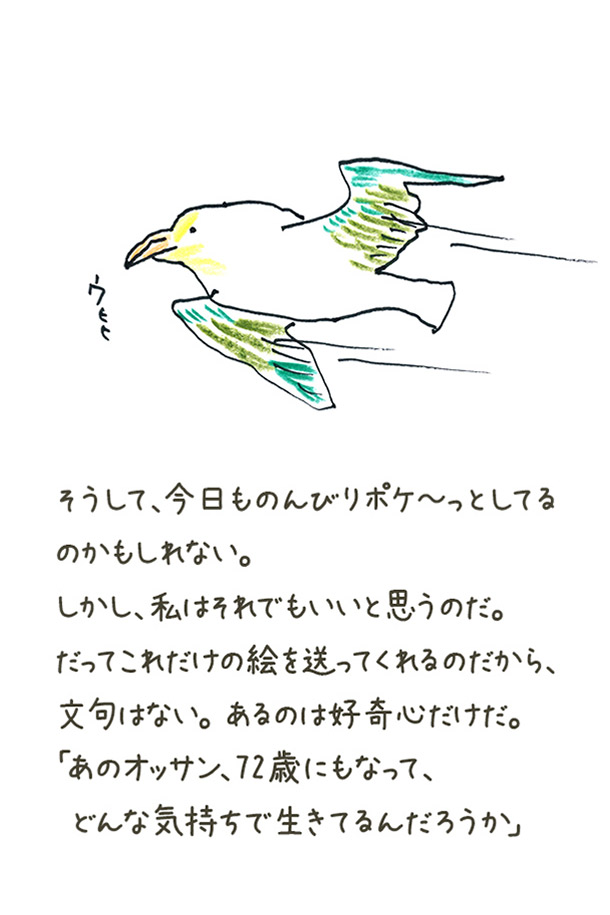 ウヒヒ
そうして、今日ものんびりポケ〜っとしてる
のかもしれない。
しかし、私はそれでもいいと思うのだ。
だってこれだけの絵を送ってくれるのだから、
文句はない。あるのは好奇心だけだ。
「あのオッサン、72歳にもなって、
どんな気持ちで生きてるんだろうか」